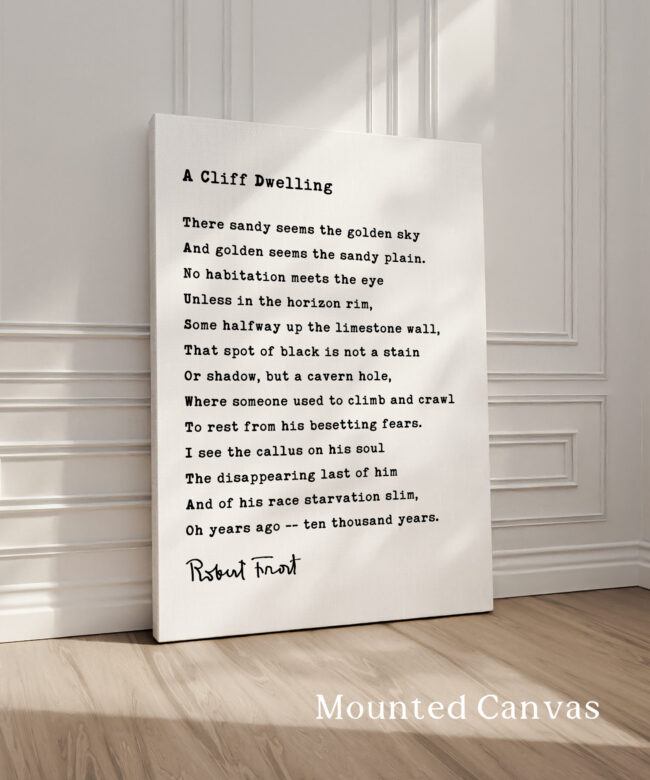 A Cliff Dwelling
There sandy seems the golden sky
And golden seems the sandy plain.
No habitation meets the eye
Unless in the horizon rim,
Some halfway up the limestone wall,
That spot of black is not a stain
Or shadow, but a cavern hole,
Where someone used to climb and crawl
To rest from his besetting fears.
I see the callus on his soul
The disappearing last of him
And of his race starvation slim,
Oh years ago -- ten thousand years.
Robert Frost
Mounted Canvas